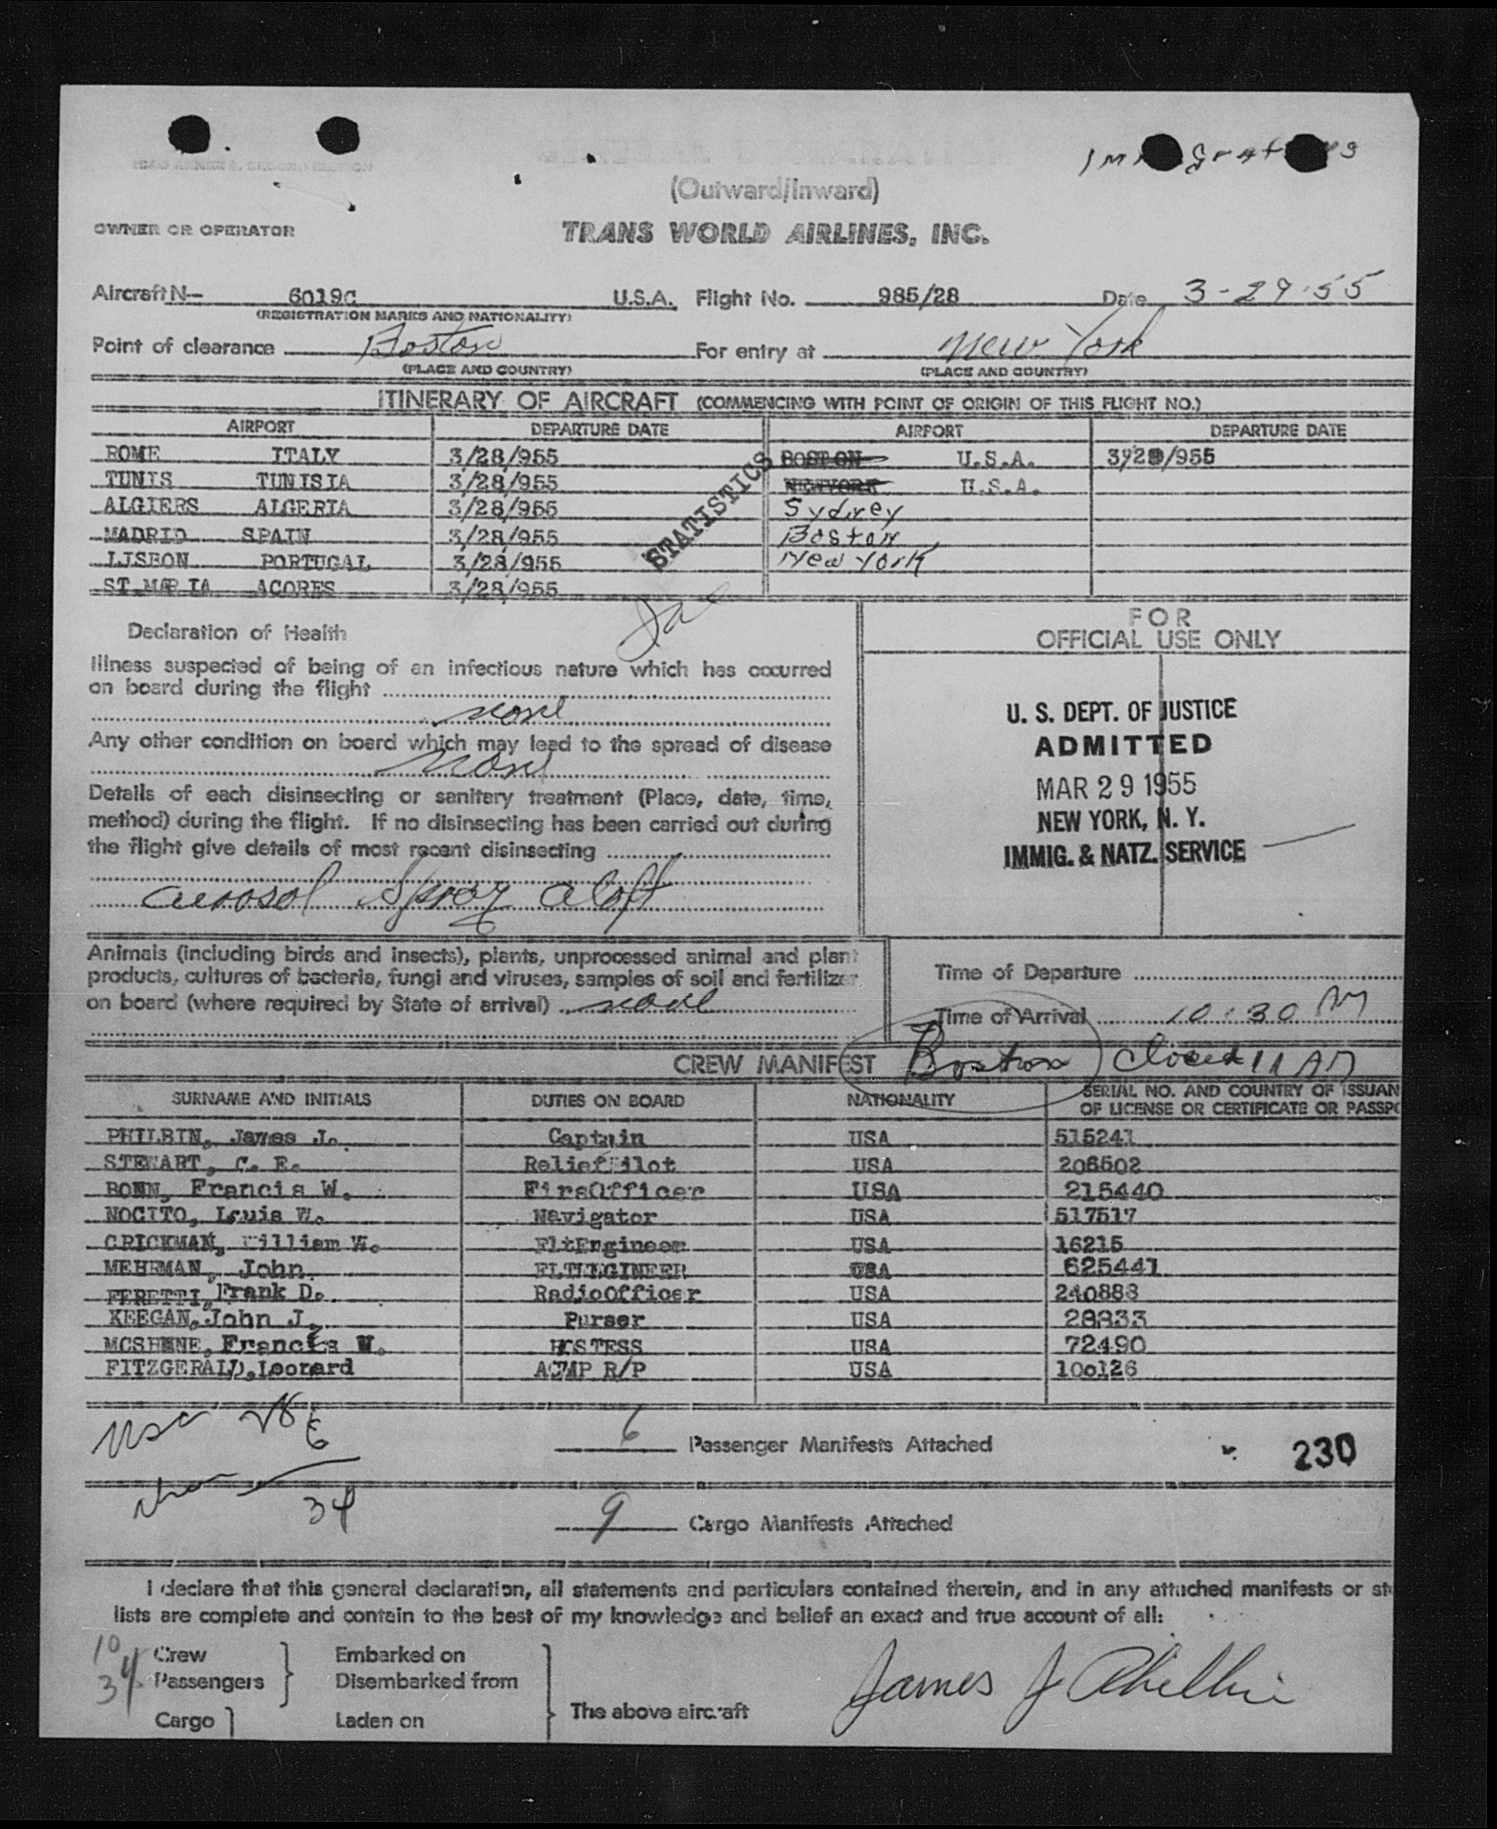 (Outward/Inward)
OWNER OR OPERATOR TRANS WORLD AIRLINES, INC.
Aircraft N— 6019C U.S.A. Flight No. 985/28 Date 3-29-55
(REGISTRATION MARKS AND NATIONALITY)
Point of clearance Boston For entry at New York
(PLACE AND COUNTRY) (PLACE AND COUNTRY)
ITINERARY OF AIRCRAFT (COMMENCING WITH POINT OF ORIGIN OF THIS FLIGHT NO.)
AIRPORT DEPARTURE DATE AIRPORT DEPARTURE DATE
ROME ITALY 3/28/955 BOSTON U.S.A. 3/29/955
TUNIS TUNISIA 3/28/955 NEWYORK U.S.A.
ALGIERS ALGERIA 3/28/955 Sydney
MADRID SPAIN 3/28/955 Boston
LISBON PORTUGAL 3/28/955 New York
ST.MARIA ACORES 3/28/955
STATISTICS
Declaration of Health
FOR
OFFICIAL USE ONLY
Illness suspected of being of an infectious nature which has occurred
on board during the flight
none
Any other condition on board which may lead to the spread of disease
none
Details of each disinsecting or sanitary treatment (Place, date, time,
method) during the flight. If no disinsecting has been carried out during
the flight give details of most recent disinsecting
aerosol Spray aloft
U. S. DEPT. OF JUSTICE
ADMITTED
MAR 29 1955
NEW YORK, N. Y.
IMMIG. & NATZ. SERVICE
Animals (including birds and insects), plants, unprocessed animal and plant
products, cultures of bacteria, fungi and viruses, samples of soil and fertilizer
on board (where required by State of arrival) none
Time of Departure
Time of Arrival 10:30 AM
CREW MANIFEST Boston Closed 11 AM
SURNAME AND INITIALS DUTIES ON BOARD NATIONALITY SERIAL NO. AND COUNTRY OF ISSUAN
OF LICENSE OR CERTIFICATE OR PASSPO
PHILBIN, James J. Captain USA 515241
STEWART, C. E. ReliefPilot USA 206502
BONN, Francis W. FirsOfficer USA 215440
NOCITO, Louis W. Navigator USA 517517
CRICKMAN, William W. FltEngineer USA 16215
MEHRMAN, John FLTENGINEER USA 625441
FERETTI, Frank D. RadioOfficer USA 240888
KEEGAN, John J. Purser USA 28833
MCSHENE, Francis W. HOSTESS USA 72490
FITZGERALD, Leonard ACMP R/P USA 100126
USC 28
6
6 Passenger Manifests Attached
230
34
9 Cargo Manifests Attached
I declare that this general declaration, all statements and particulars contained therein, and in any attached manifests or st
lists are complete and contain to the best of my knowledge and belief an exact and true account of all:
10 Crew Embarked on
34 Passengers Disembarked from
Cargo Laden on The above aircraft
James J Philbin